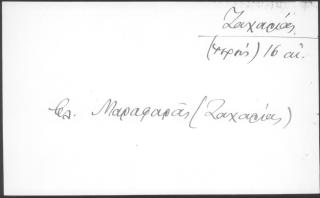 Ζαχαρίας
(ιερεύς) 16 αἰ.
βλ. Μαραφαρᾶς (Ζαχαρίας)